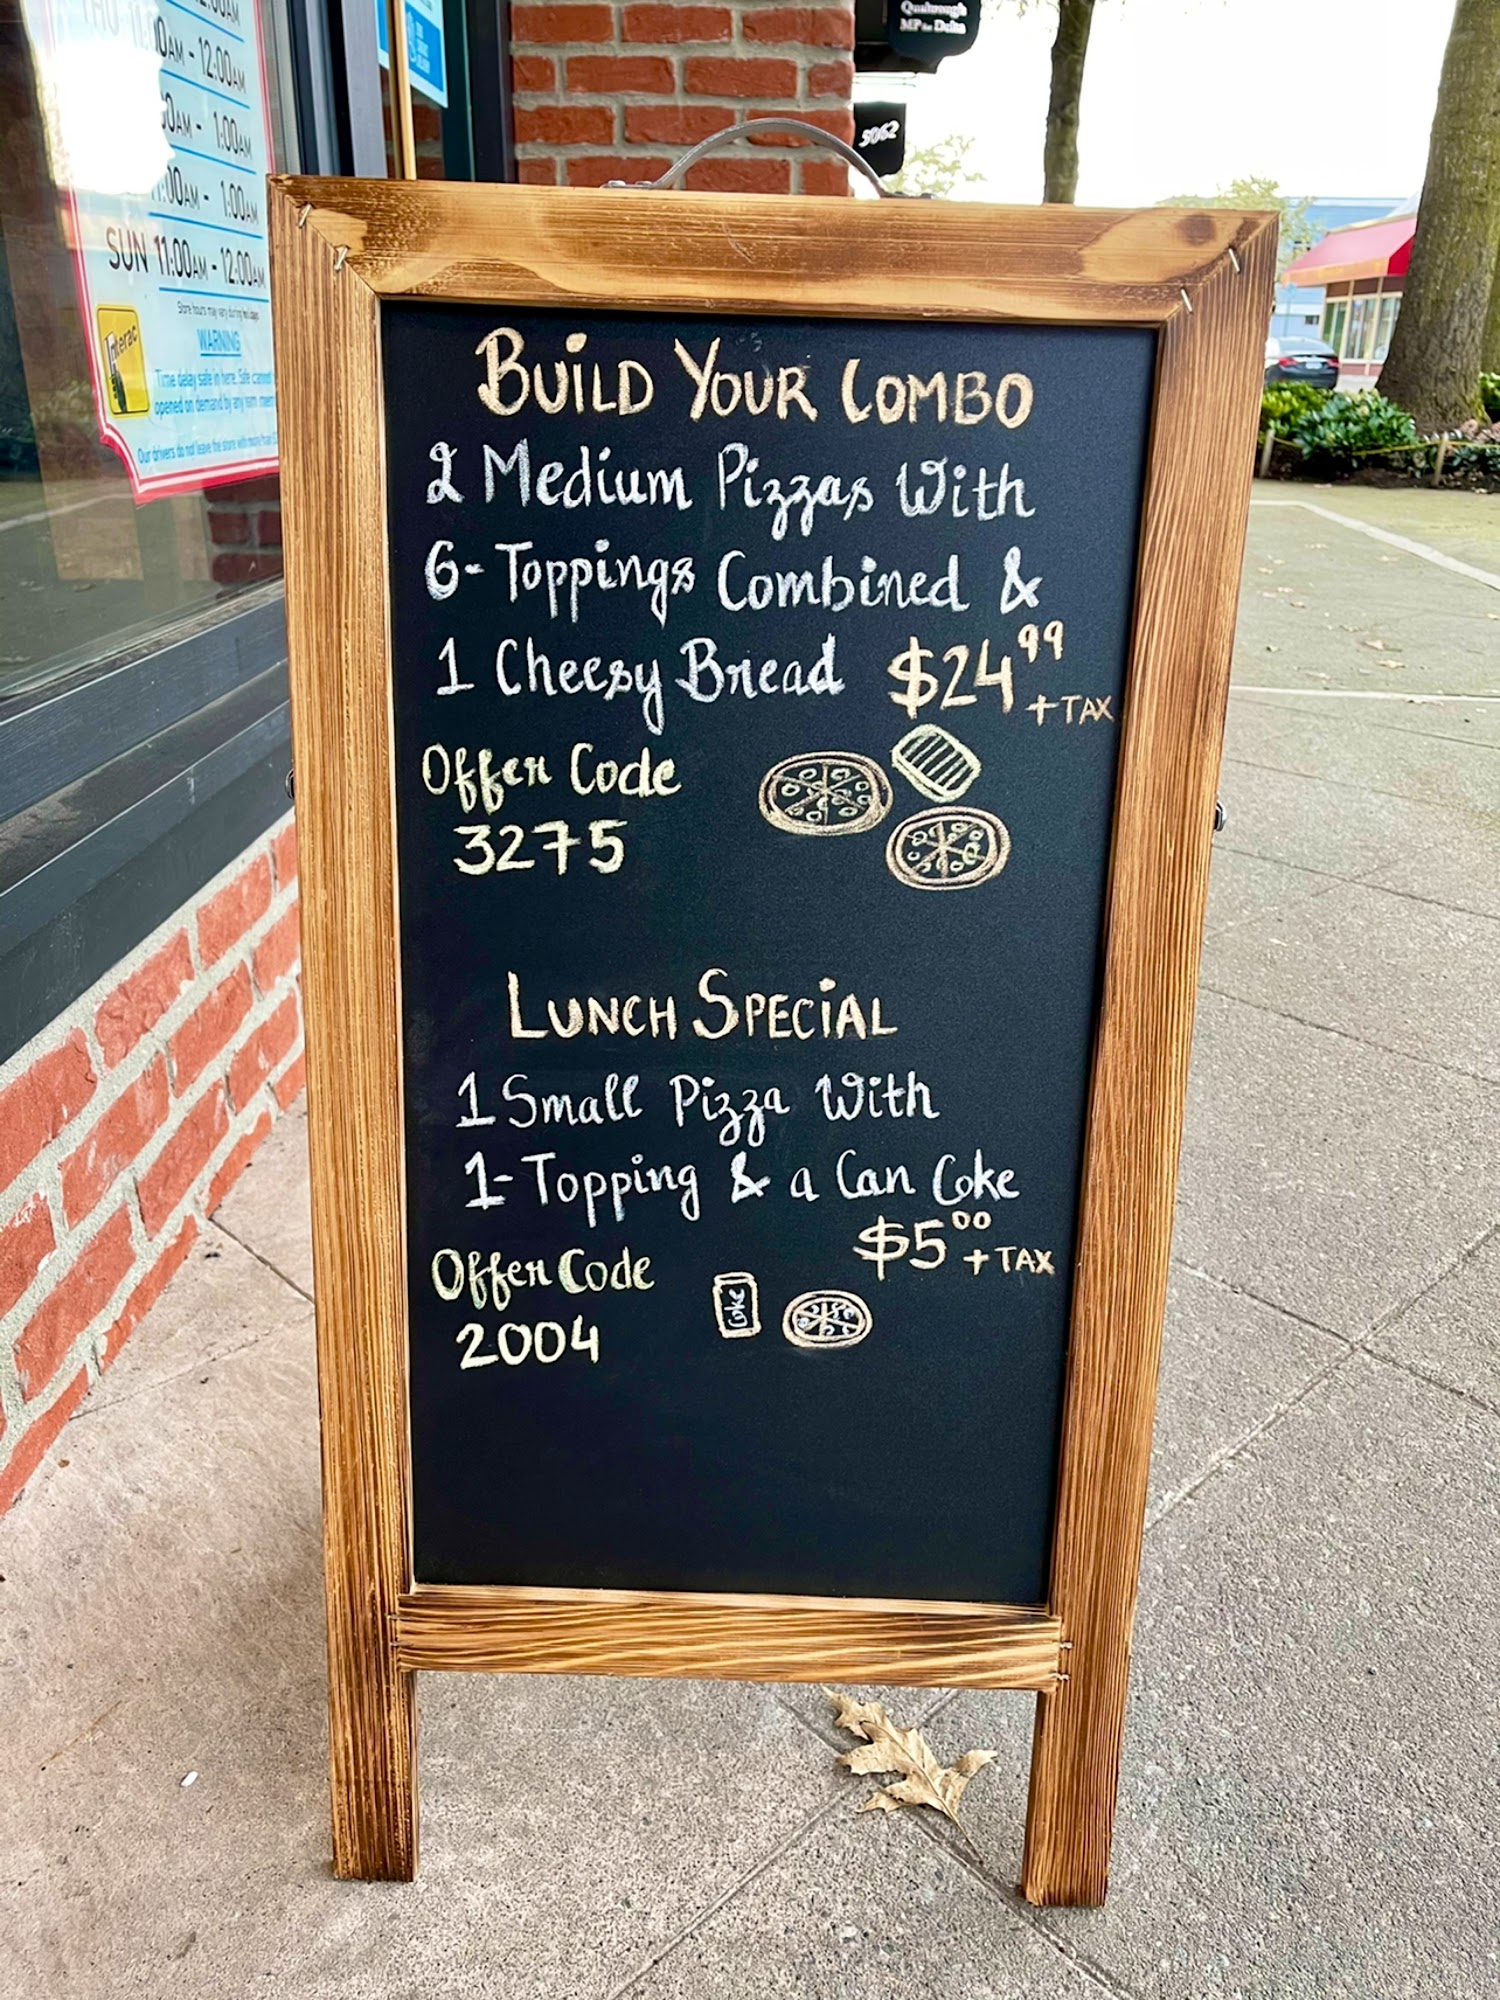 THU 11:00AM - 12:00AM
- 1:00AM
- 1:00AM
SUN 11:00AM - 12:00AM
Store hours may vary during holidays
Interac
WARNING
Time delay safe in here. Safe cannot
opened on demand by any team mem
Our drivers do not leave the store with more than
Qualtrough
MP for Delta
5062
BUILD YOUR COMBO
2 Medium Pizzas With
6-Toppings Combined &
1 Cheesy Bread $24.99
+ TAX
Offer Code
3275
LUNCH SPECIAL
1 Small Pizza With
1-Topping & a Can Coke
$5.00 + TAX
Offer Code
2004
Coke